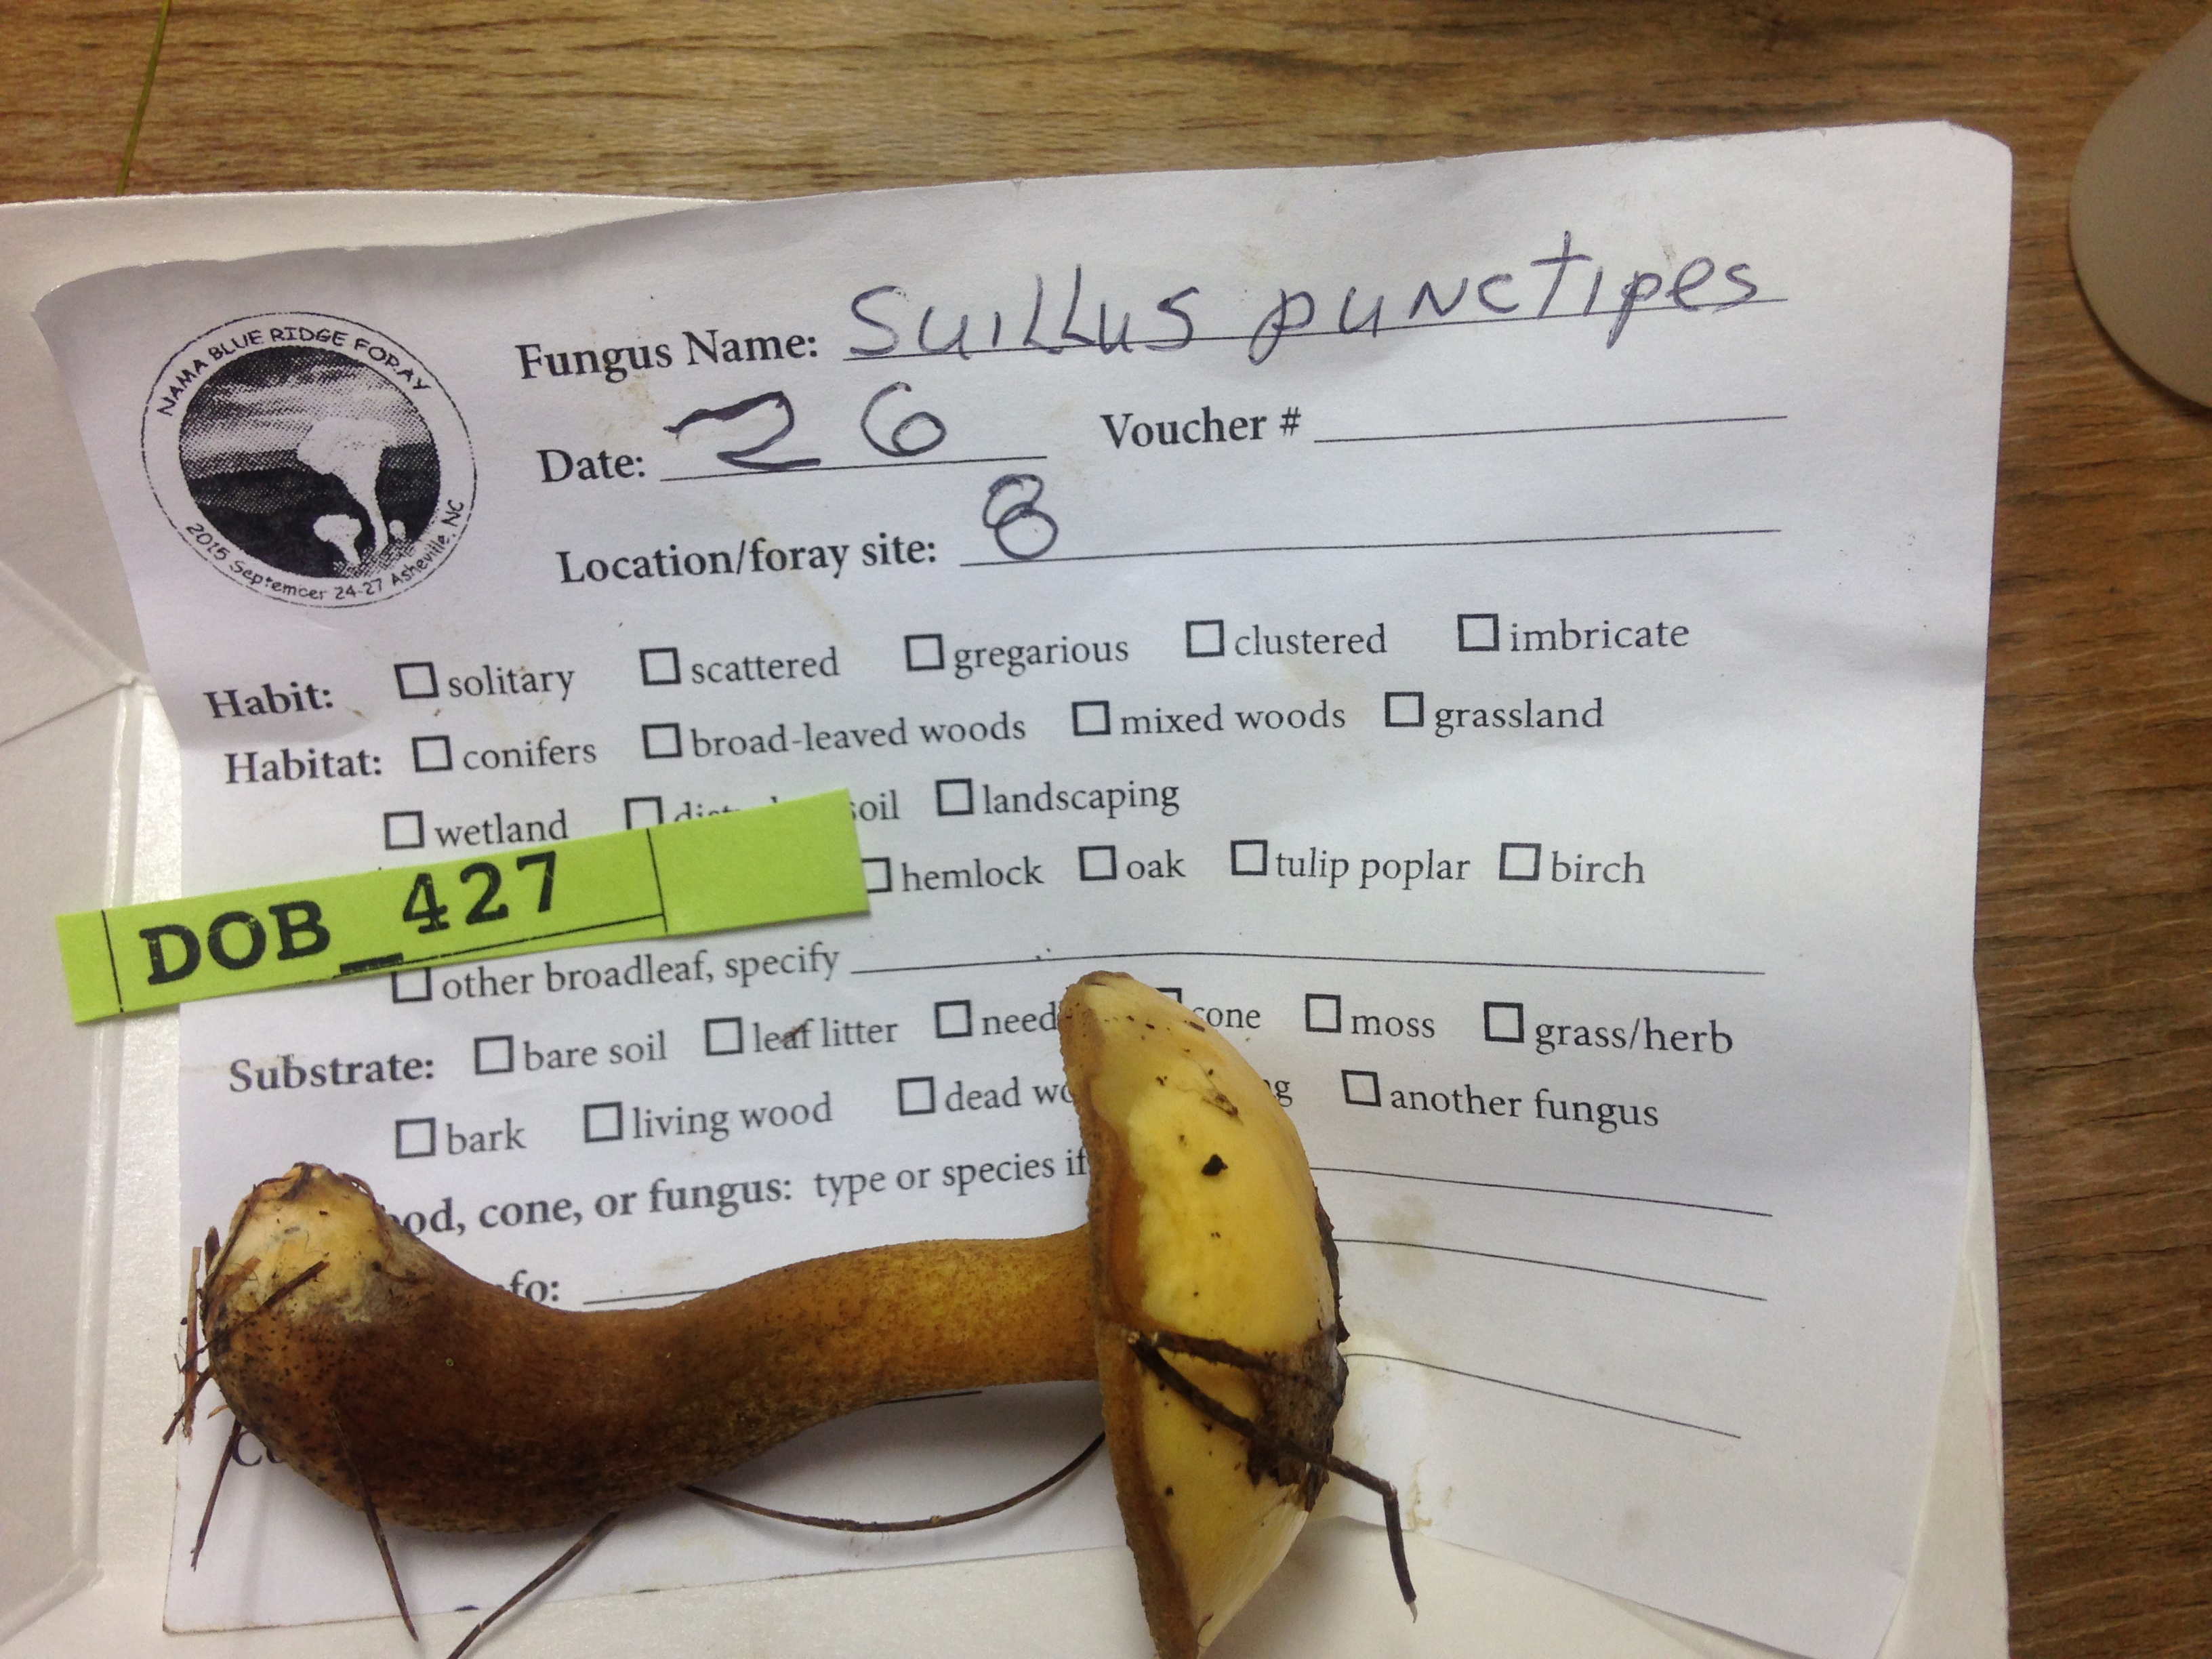 NAMA BLUE RIDGE FORAY
2015 September 24-27 Asheville, NC
Fungus Name: Suillus punctipes
Date: 26 Voucher #
Location/foray site: 8
Habit: solitary scattered gregarious clustered imbricate
Habitat: conifers broad-leaved woods mixed woods grassland
wetland soil landscaping
DOB_427 hemlock oak tulip poplar birch
other broadleaf, specify
Substrate: bare soil leaf litter need cone moss grass/herb
bark living wood dead another fungus
cone, or fungus: type or species if